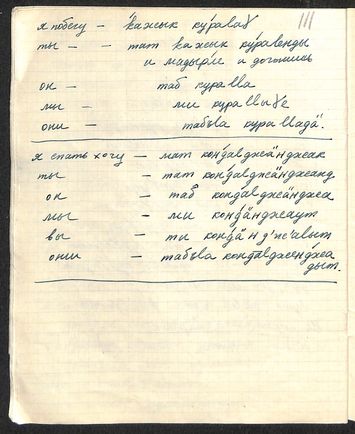 111
я побегу – қажық кураваɣ
ты – – тат қажық куравенды
и мадырлы и догонишь
он – таб курашша
мы – – ми курашыɣе
они – табыва курашшадӓ.
я спать хочу – мат кондавджӓнджак
ты – тат кондавджӓнджанд
он – таб кондавджӓнджа
мы – ми кондӓнджаут
вы – ти кондӓнд'ж'авыт
они – табыва кондавдженджа
дыт.